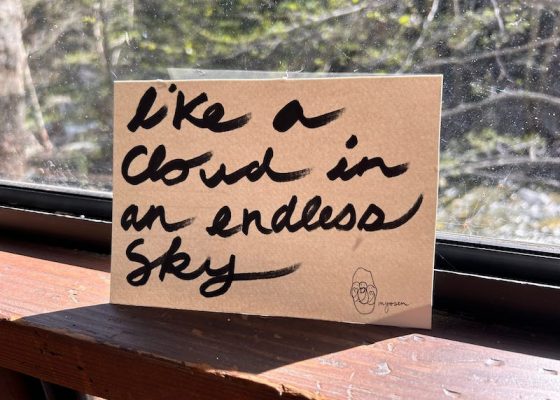 like a
cloud in
an endless
sky
myosen